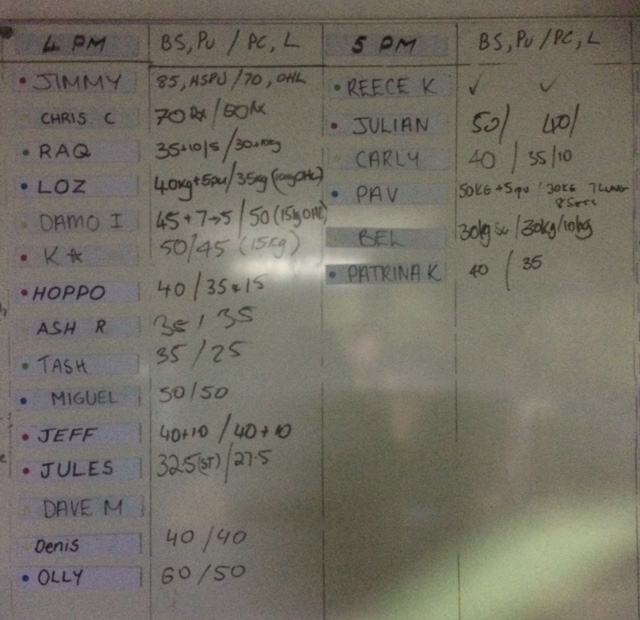 4 PM BS, PU / PC, L 5 PM BS, PU / PC, L
JIMMY 85, HSPU / 70, OHL REECE K ✓ ✓
CHRIS C 70 Rx / 50 Rx JULIAN 50/ 40/
RAQ 35+10/5 / 30+10kg CARLY 40 / 35/10
LOZ 40kg+5pu / 35kg (10kg OHL) PAV 50KG + 5 pu / 30KG 7 LUNGE
DAMO I 45 + 7→5 / 50 (15kg OHL) BEL 30kg / 30kg/10kg
K 50/45 (15kg) PATRINA K 40 / 35
HOPPO 40 / 35 & 15
ASH R 35 / 35
TASH 35 / 25
MIGUEL 50/50
JEFF 40+10 / 40+10
JULES 32.5(ST) / 27.5
DAVE M
Denis 40/40
OLLY 60/50